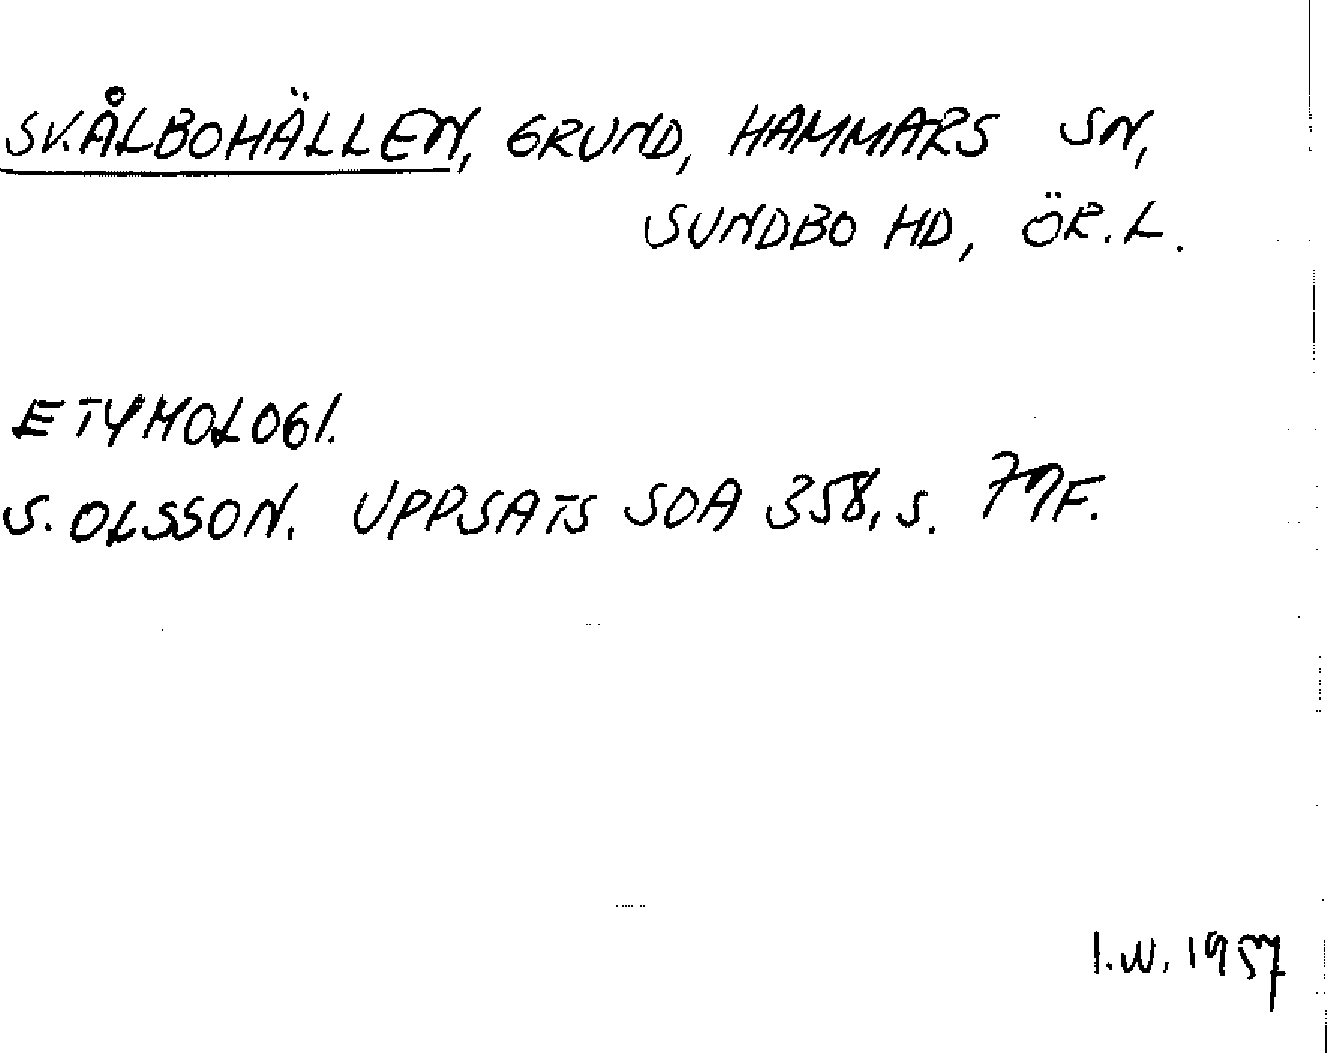 SKÅLBOHÄLLEN, GRUND, HAMMARS SN,
SUNDBO HD, ÖR.L.
ETYMOLOGI.
S. OLSSON. UPPSATS SOA 358, S.
I.W. 1957